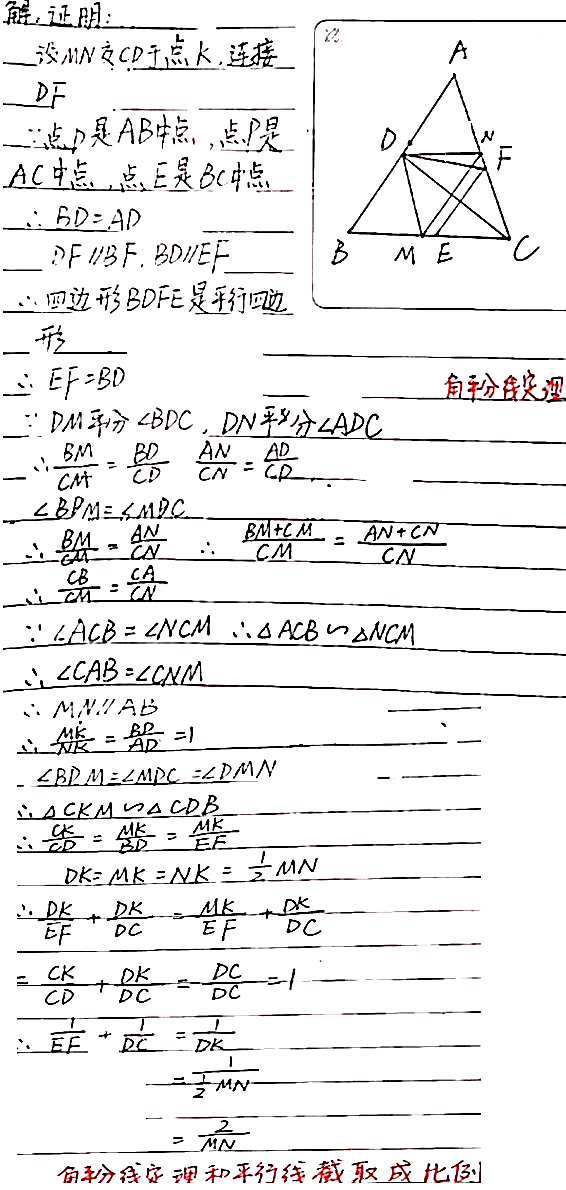 解,证明:
设MN交CD于点K,连接
DF
∵点D是AB中点,点P是
AC中点,点E是BC中点
∴BD=AD
DF//BF,BD//EF
∴四边形BDFE是平行四边
形
∴EF=BD
角平分线定理
∵DM平分∠BDC,DN平分∠ADC
∴BM/CM=BD/CD AN/CN=AD/CD
∠BPM=∠MDC
∴BM/CM=AN/CN ∴(BM+CM)/CM=(AN+CN)/CN
∴CB/CM=CA/CN
∵∠ACB=∠NCM ∴△ACB∽△NCM
∴∠CAB=∠CNM
∴MN//AB
∴MK/NK=BD/AD=1
∠BDM=∠MDC=∠DMN
∴△CKM∽△CDB
∴CK/CD=MK/BD=MK/EF
DK=MK=NK=1/2MN
∴DK/EF+DK/DC=MK/EF+DK/DC
=CK/CD+DK/DC=DC/DC=1
∴1/EF+1/DC=1/DK
=1/(1/2MN)
=2/MN
角平分线定理和平行线截取成比例
A
D
N
F
B
M
E
C